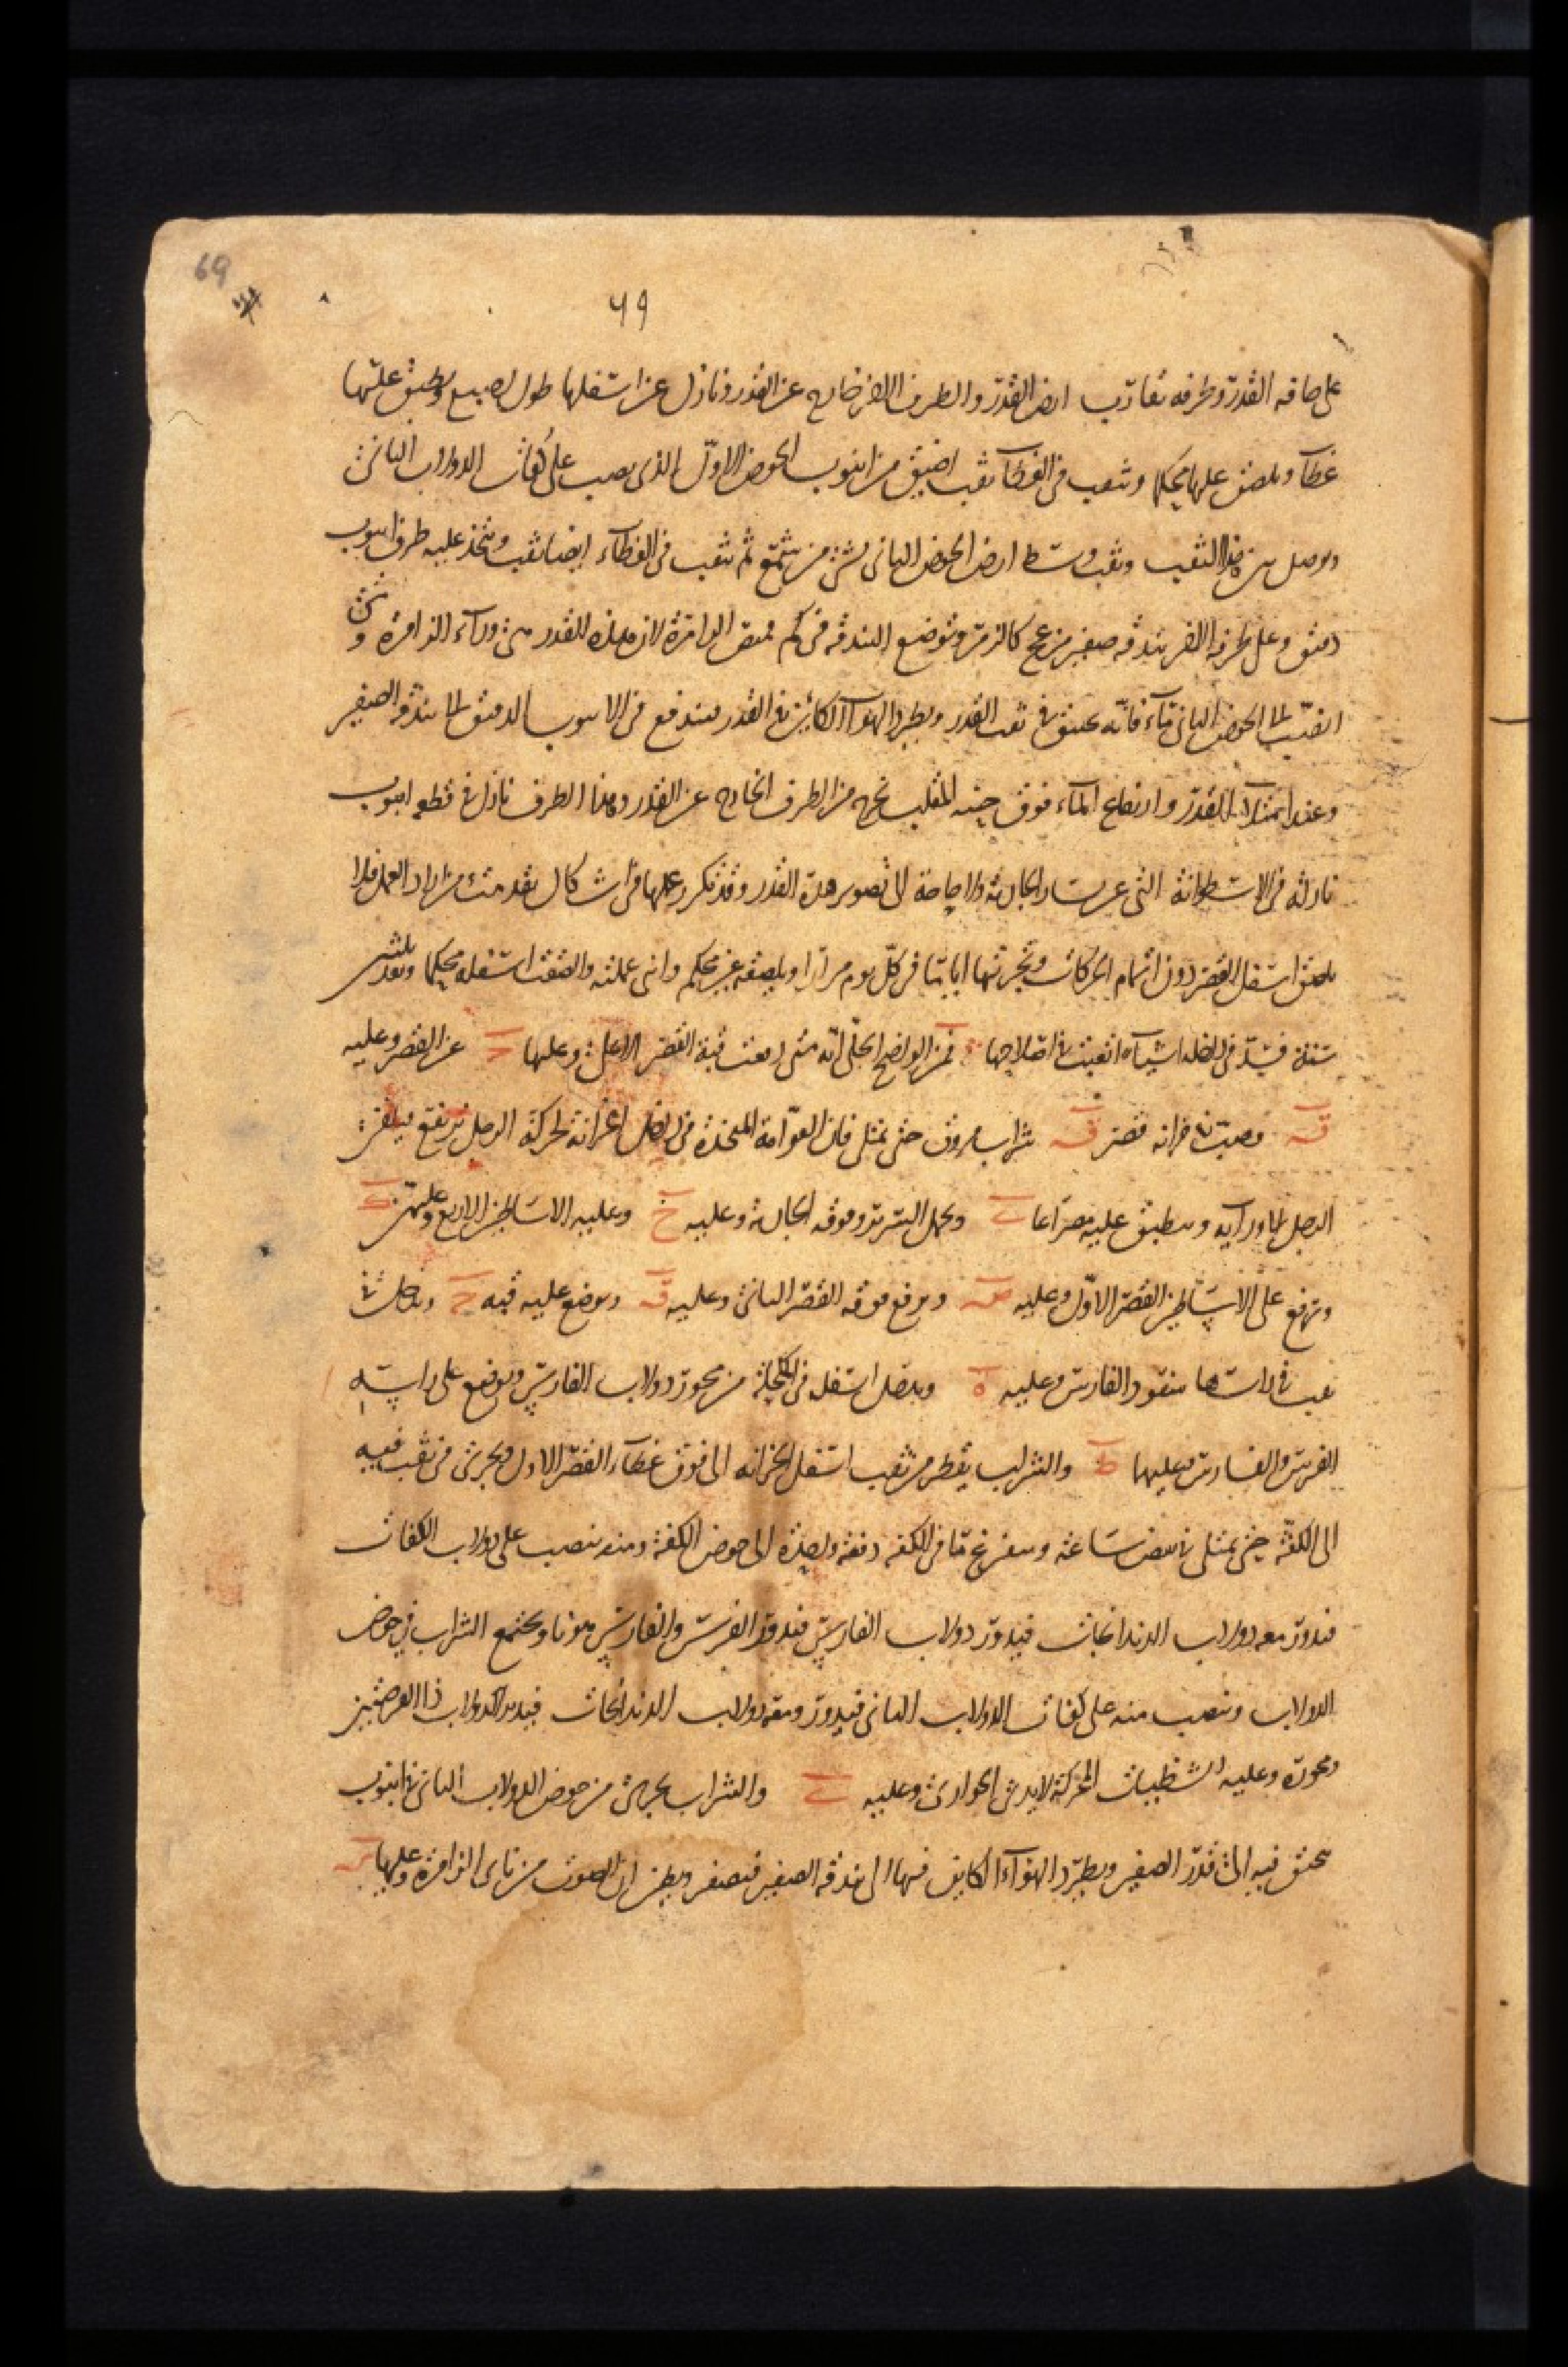 69
٦٩
على حافه القدر وطرفه يقارب ارض القدر والطرف الاخر خارج عن القدر ونازل عن اسفلها طول اصبع ويطبق عليها
غطآ ويلصق عليها محكما ويثقب فى الغطآ ثقب اضيق من انبوب الحوض الاول الذى يصب على كفات الدولاب الثانى
ويوصل بين هذا الثقب وثقب وسط ارض الحوض الثانى بشئ من شمع ثم يثقب فى الغطآء ايضا ثقب ويتخذ عليه طرف انبوب
دقيق وعلى طرفه الاخر بندقه صفير من عج كالزمر وتوضع البندقه فى كم قميص الزامرة لان هذه القدر هى ورآء الزامرة ومتى
انصب الى الحوض الثانى مآء فانه يحتقن فى ثقب القدر ويطرد الهوآ الكائن فى القدر فيندفع فى الانبوب الدقيق الى بندقه الصفير
وعند امتلآ القدر وارتفاع المآء فوق حنيه المقلب يخرج من الطرف الخارج عن القدر وهذا الطرف نازل فى قطعه انبوب
نازله فى الاسطوانه التى عن يسار الجاريه ولا حاجة الى تصوير هذه القدر وقد ذكر عملها فى اشكال تقدمت من اراد العمل فلا
يلصق اسفل القصر دون اتمام الحركات وتجربتها اياما فى كل يوم مرارا ويلصقه غير محكم وانى عملته والصقت اسفله محكما وبعد ثلثين
سنة فسد فى داخله اشيآء اتعبت فى اصلاحها فمن الواضح الجلى انه متى رفعت قبة القصر الاعلى وعليها ح عن القصر وعليه
ق وصب فى خزانه قصر ق شراب مروق حتى تمتلى فان العوامة المتخذة فى داخل الخزانه لحركة الرجل ترتفع فيفر
الرجل الى ورآيه وينطبق عليه مصراعا ى ويحمل السرير وفوقه الجاريه وعليه خ وعليه الاساطين الاربع وعليهن ك
وترفع على الاساطين القصر الاول وعليه ص ويرفع فوقه القصر الثانى وعليه ق ويوضع عليه قبه ح ويدخل فى
ثقب فى راسها سفود الفارس وعليه ه ويدخل اسفله فى الكحلة من محور دولاب الفارس ويوضع على راسه
الفرس والفارس وعليهما ط والشراب يقطر من ثقب اسفل الخزانه الى فوق غطآء القصر الاول ويجرى فى ثقب فيه
الى الكفه حتى تمتلى فى نصف ساعه وينفرغ ما فى الكفه دفعه واحده الى حوض الكفه ومنه ينصب على دولاب الكفات
فيدور معه دولاب الدندانجات فيدور دولاب الفارس فيدور الفرس والفارس هونا ويجتمع الشراب فى حوض
الدولاب وينصب منه على كفات الدولاب الثانى فيدور ومعه دولاب الدندانجات فيدير الدولاب ذا القرصتين
ومحوره وعليه الشظيات المحركة لايدى الجوارى وعليه ى والشراب يجرى من حوض الدولاب الثانى فى انبوب
يحتقن فيه الى قدر الصفير ويطرد الهوآء الكاين فيها الى بندقه الصفير فيصفر ويظن ان الصوت من ناى الزامرة وعليها